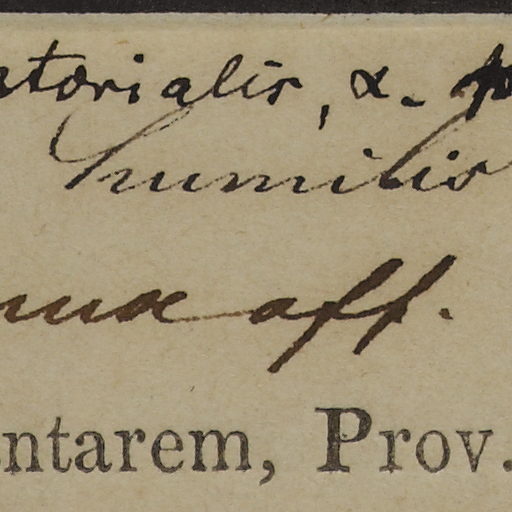 atorialis, α.
humilis
nux aff.
ntarem, Prov.